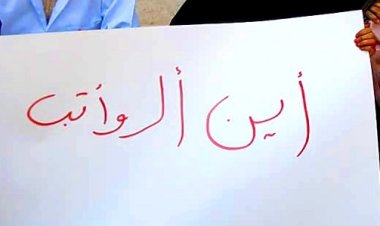 أين ألرواتب